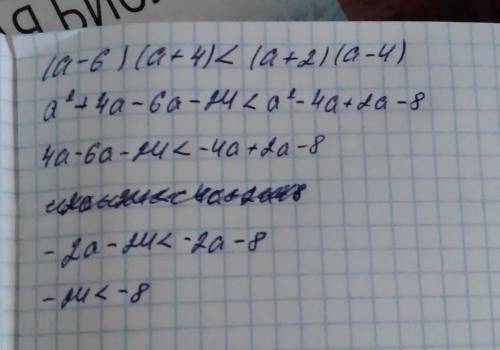 (a-6)(a+4)<(a+2)(a-4)
a²+4a-6a-24<a²-4a+2a-8
4a-6a-24<-4a+2a-8
-2a-24<-2a-8
-24<-8